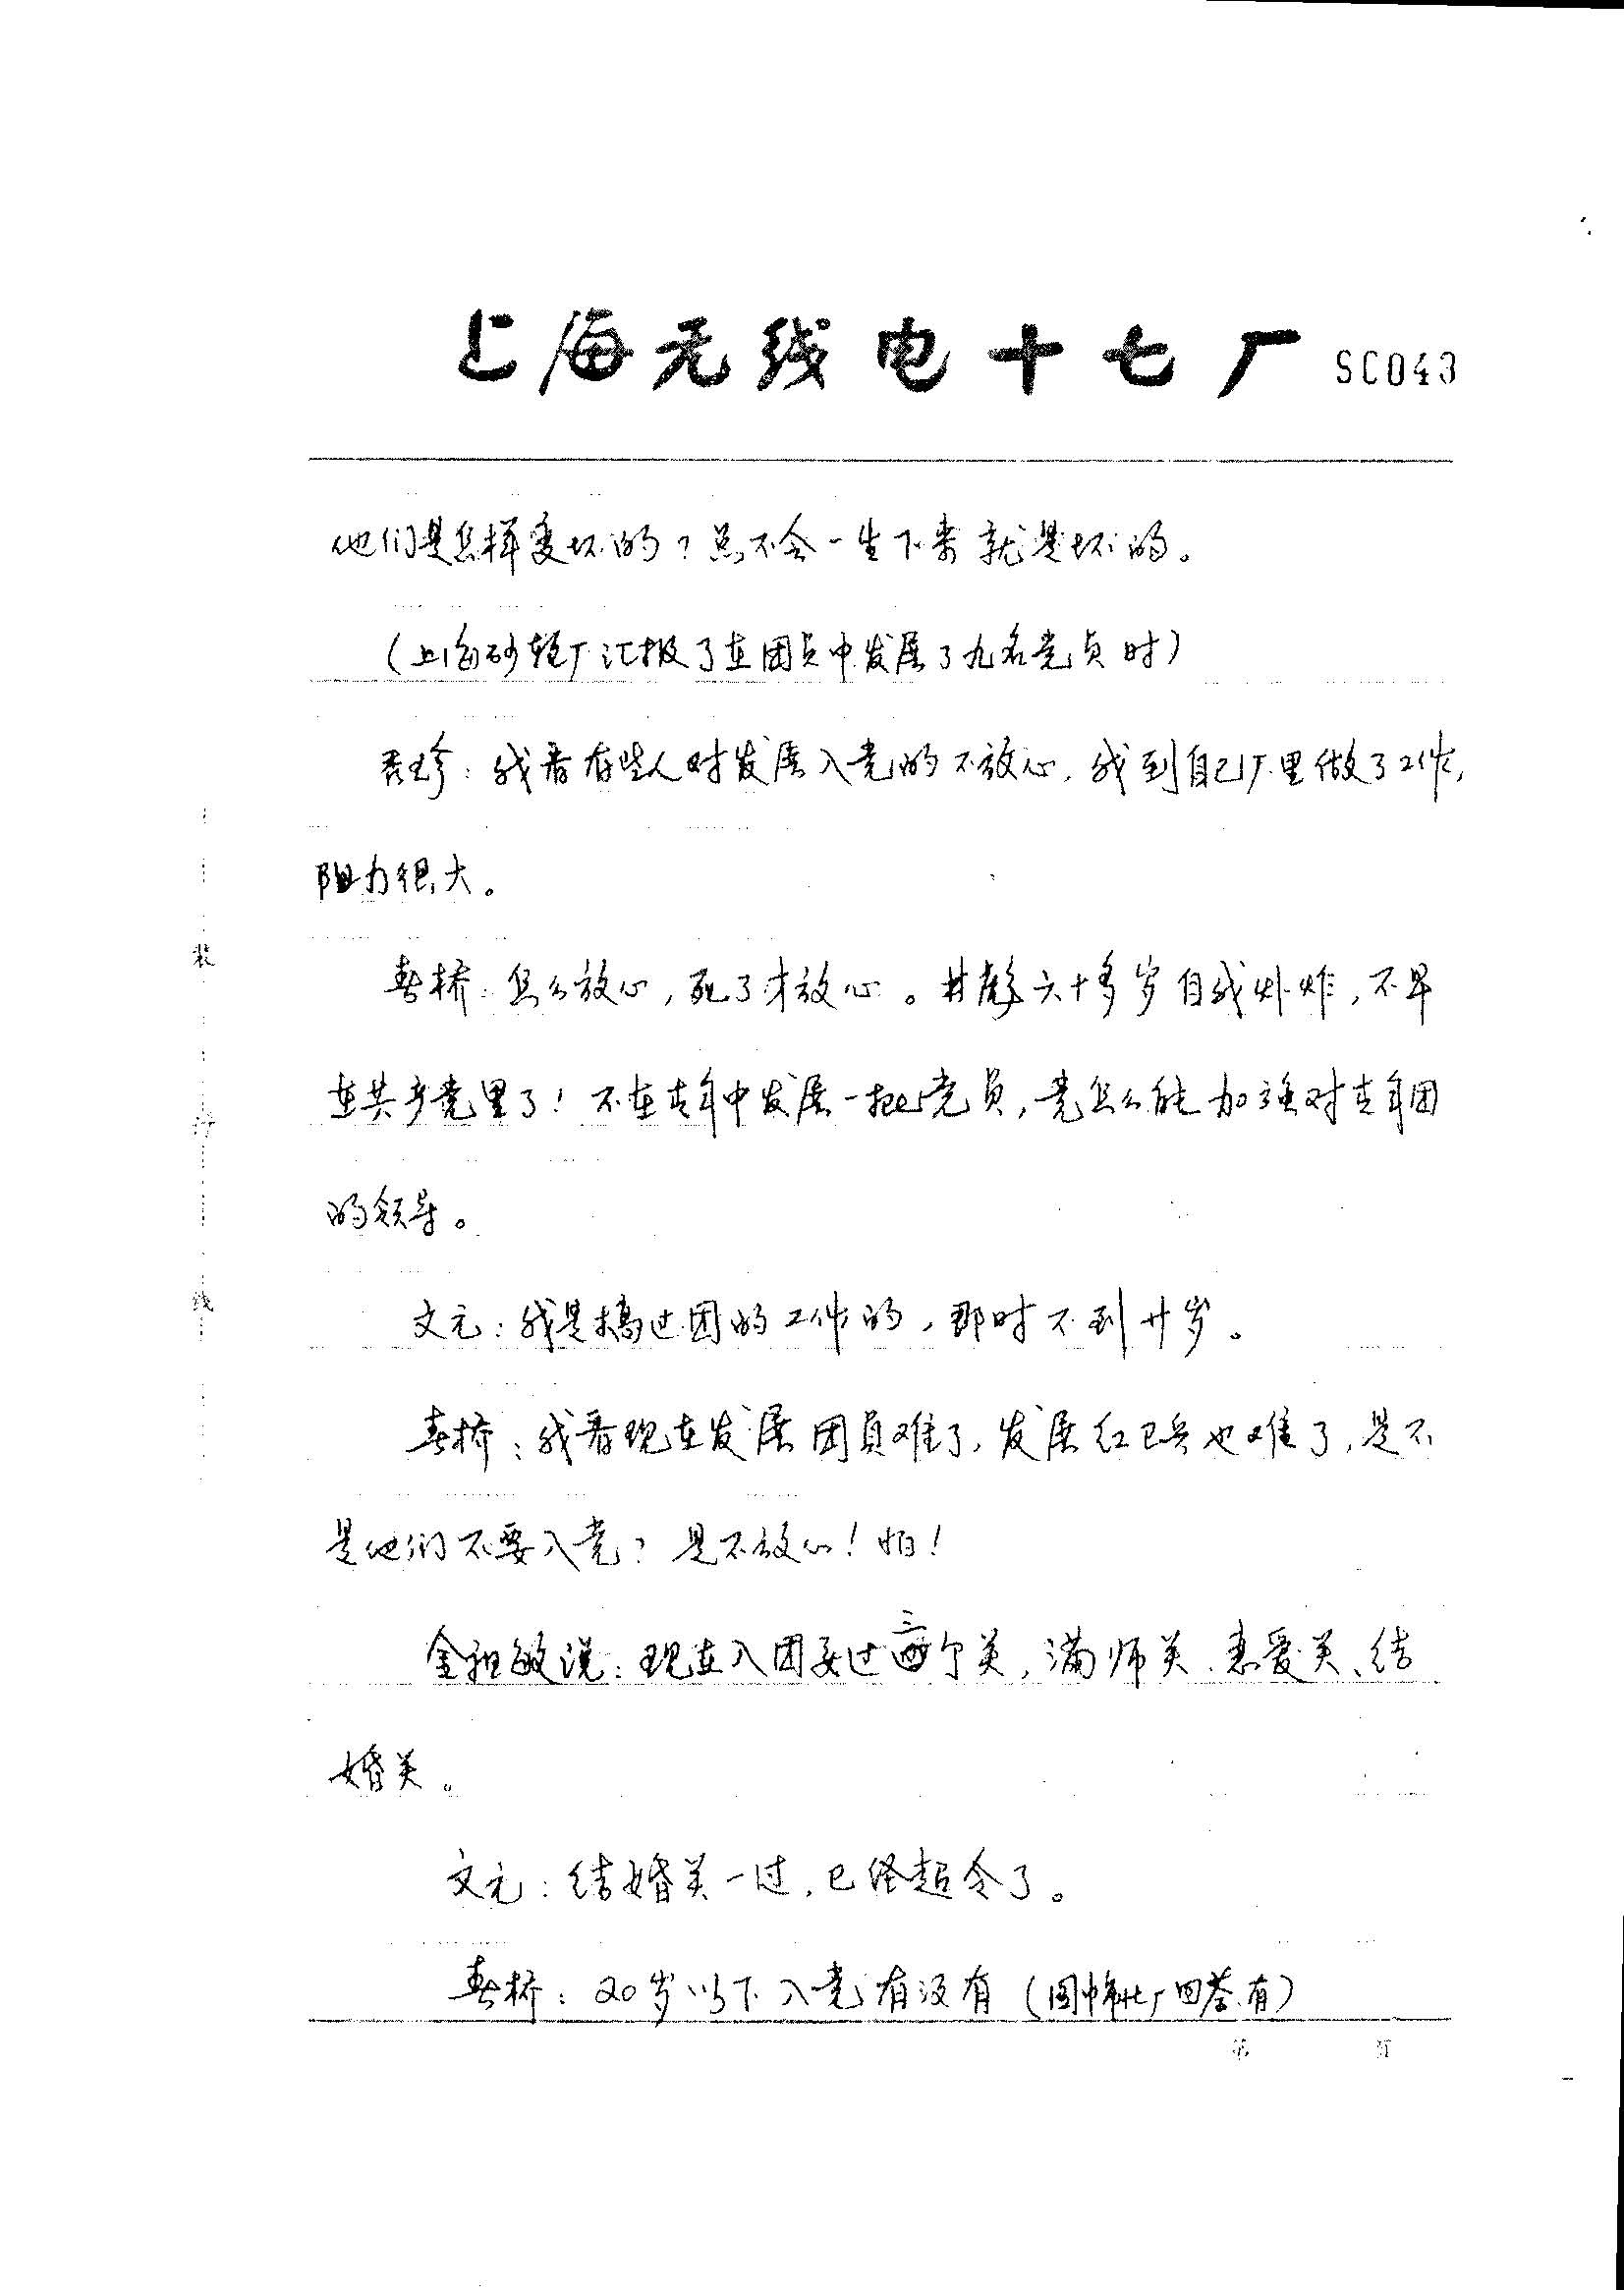 上海无线电十七厂 SC043
他们是怎样变坏的？总不会一生下来就是坏的。
（上海砂轮厂汇报了在团员中发展了九名党员时）
秀珍：我看有些人对发展入党的不放心，我到自己厂里做了工作，
阻力很大。
春桥：怎么放心，死了才放心。林彪六十多岁自我爆炸，不早
在共产党里了！不在青年中发展一批党员，党怎么能加强对青年团
的领导。
文元：我是搞过团的工作的，那时不到廿岁。
春桥：我看现在发展团员难了，发展红卫兵也难了，是不
是他们不要入党？是不放心！怕！
金祖敏说：现在入团要过三个关，满师关、恋爱关、结
婚关。
文元：结婚关一过，已经超令了。
春桥：20岁以下入党有没有（国棉廿七厂回答有）
装
订
线
第 页